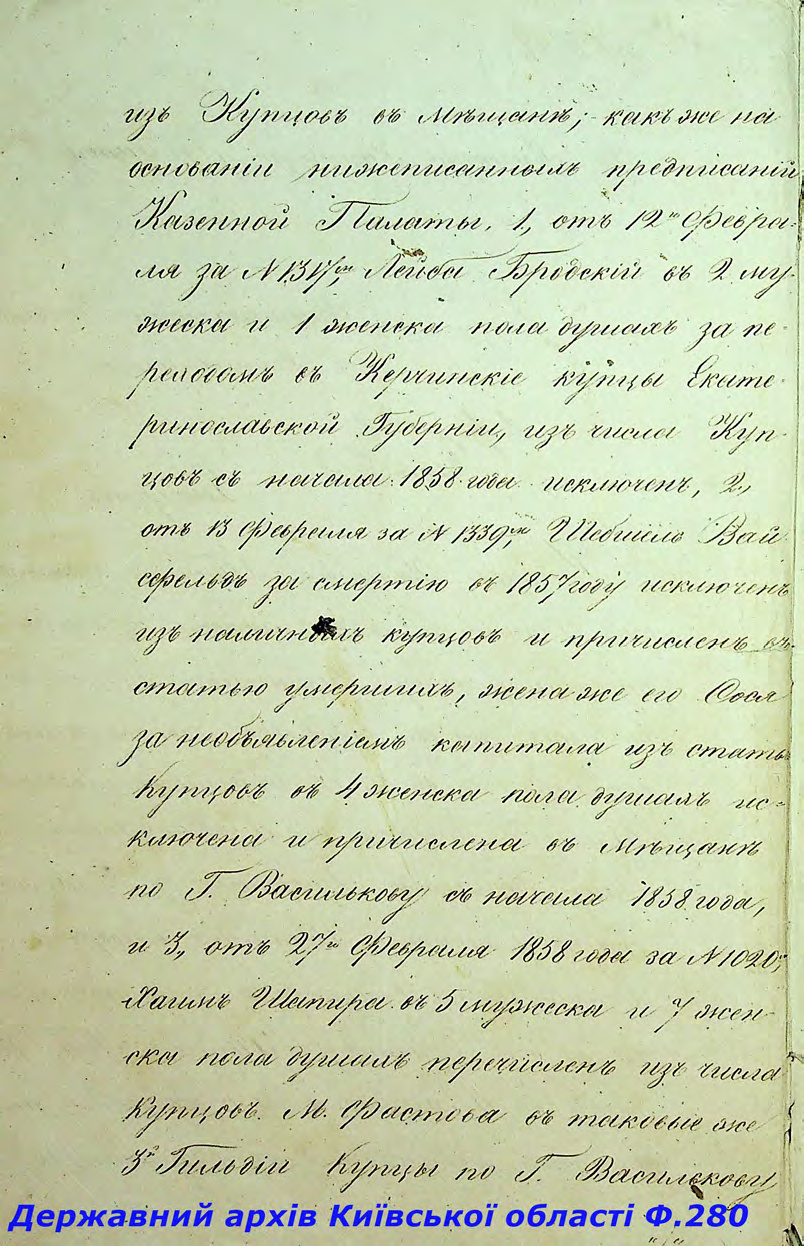 изъ Купцовъ въ Мѣщане; какъ же на
основаніи нижеписанныхъ предписаній
Казенной Палаты, 1, отъ 12го Февра-
ля за N 1317м, Лейба Бродскій въ 2 му-
жеска и 1 женска пола душахъ за пе-
реходомъ въ Керчинскіе купцы Екате-
ринославской Губерніи, изъ числа Куп-
цовъ съ начала 1858 года исключенъ, 2,
отъ 13 Февраля за N 1339м, Шебшель Вай-
сфельдъ за смертію въ 1857 году исключенъ
изъ наличныхъ купцовъ и причисленъ въ
статью умершихъ, жена же его Сося
за необъявленіемъ капитала изъ статьи
Купцовъ въ 4 женска пола душахъ ис-
ключена и причислена въ Мѣщане
по Г. Василькову съ начала 1858 года,
и 3, отъ 27го Февраля 1858 года за N 1020,
Хаимъ Шапира въ 5 мужеска и 7 жен-
ска пола душахъ перечисленъ изъ числа
Купцовъ М. Фастова въ таковые же
3й Гильдіи Купцы по Г. Василькову
Державний архів Київської області Ф.280